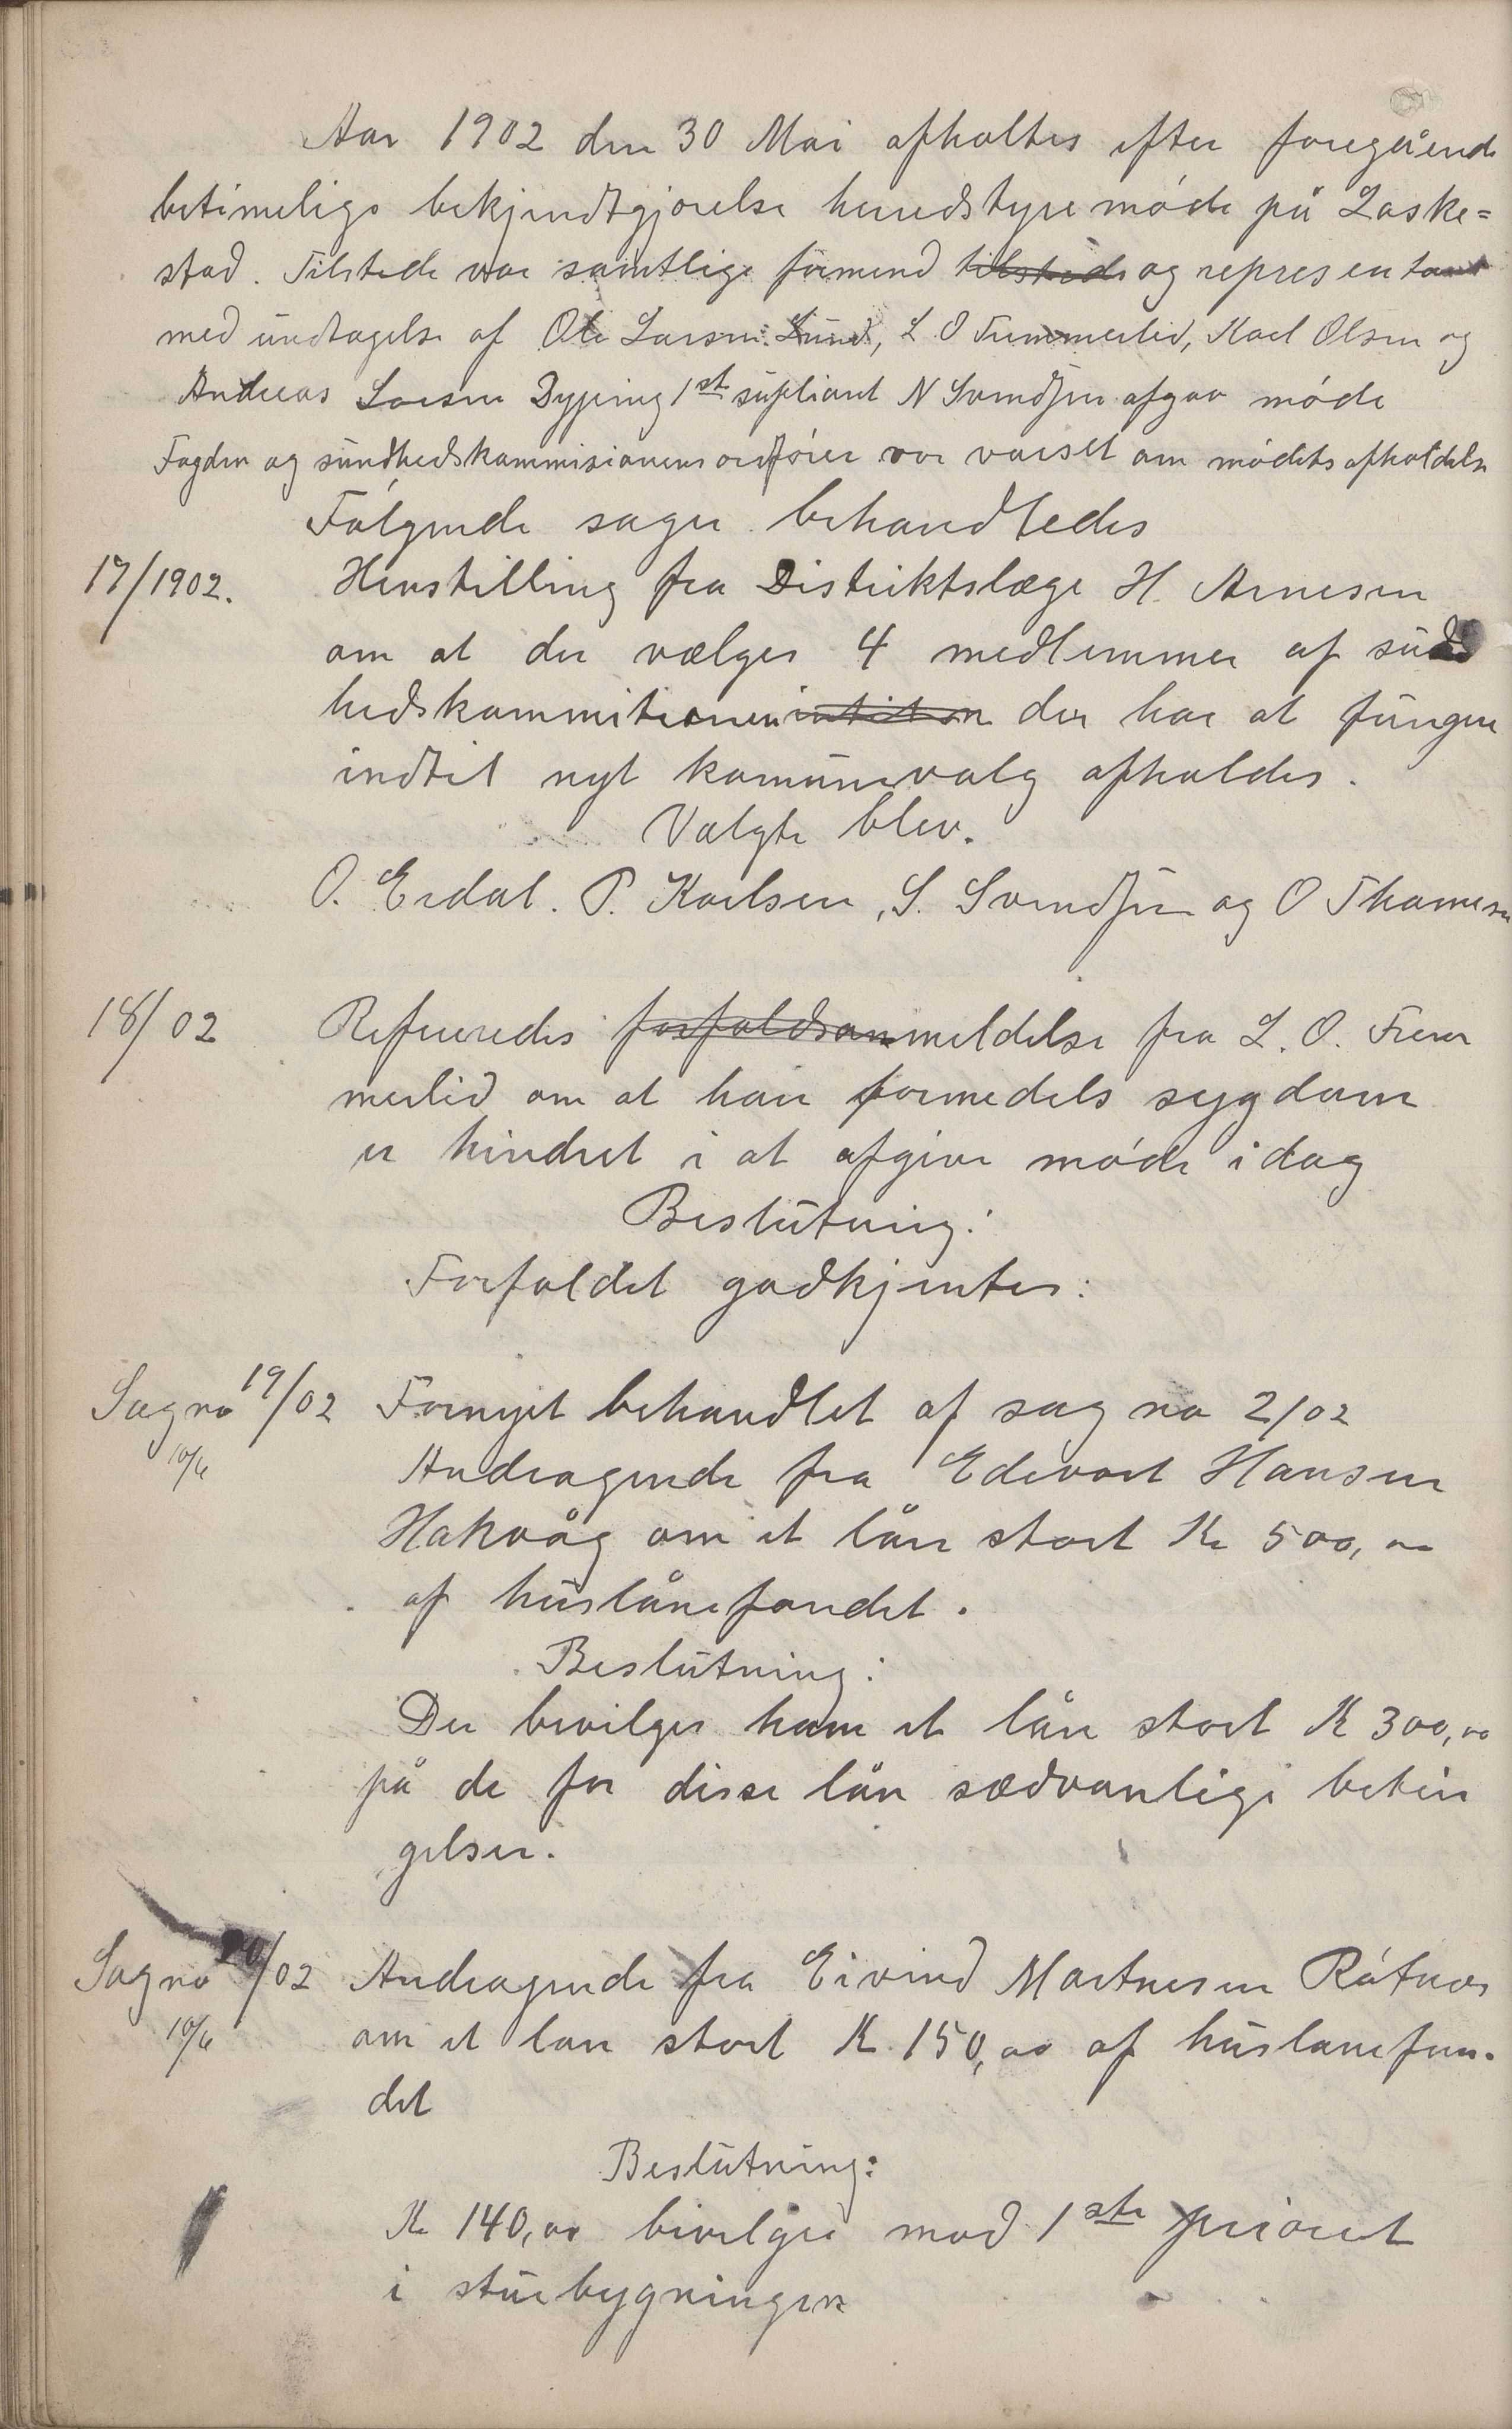 Aar 1902 den 30 Mai afholtes efter foregående
betimelige bekjendtgjørelse heredstyremøde på Laske=
stad. Tilstede var samtlige formend tilstede og representant
med undtagelse af Ole Larsen Lund, L O Tremmerlid, Karl Olsen og
Andreas Larsen Dypping 1ste supliant N Svendsen afgav møde
Fogden og sundhedskommisionens ordfører var varslet om mødets afholdelse
Følgende sager behandledes
17/1902. Henstilling fra Distriktslæge H. Arnesen
om at der vælges 4 medlemmer af sund
hedskommitionen der har at fungere
indtil nyt komunevalg afholdes.
Valgte blev.
O. Erdal. P. Karlsen, S. Svendsen og O Thomesen
18/02 Refereredes forfaldsanmeldelse fra L. O. Trem
merlid om at han formedels sygdom
er hindret i at afgive møde idag
Beslutning:
Forfaldet godkjentes:
Sag no 19/02 Fornyet behandlet af sag no 2/02
10/6 Andragende fra Edevart Hansen
Hakvåg om et lån stort Kr 500,00
af huslånefondet.
Beslutning:
Der bevilges ham et lån stort K 300,00
på de for disse lån sædvanlige betin
gelser.
Sag no 20/02 Andragende fra Eivind Martnesen Røtnes
10/6 om et lan stort K. 150,00 af huslanefon-
det
Beslutning:
Kr 140,00 bevilges mod 1ste prioret
i stuebygningen